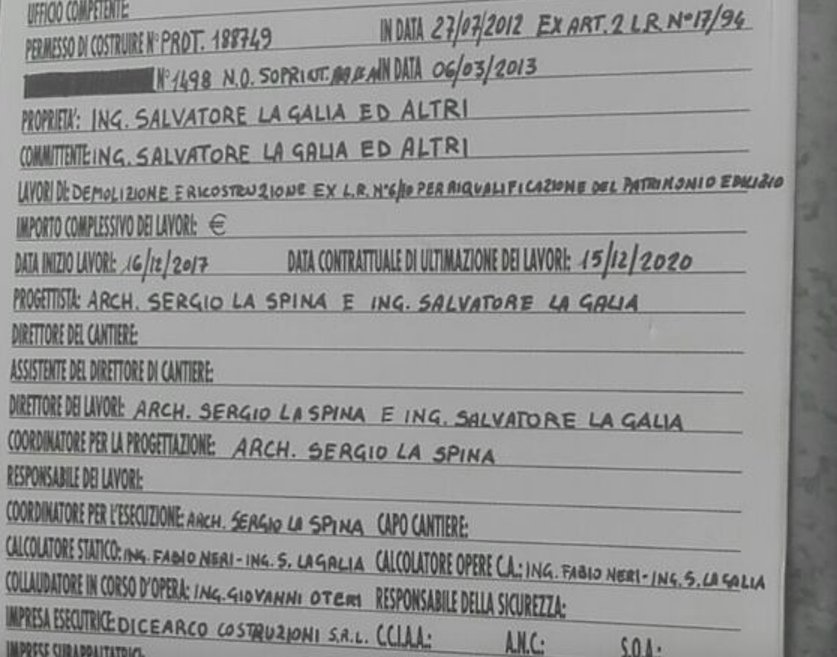 UFFICIO COMPETENTE:
PERMESSO DI COSTRUIRE N° PROT. 188749 IN DATA 27/07/2012 EX ART. 2 L.R N°17/94
N°1498 N.O. SOPRIUT. IN DATA 06/03/2013
PROPRIETA': ING. SALVATORE LA GALIA ED ALTRI
COMMITTENTE: ING. SALVATORE LA GALIA ED ALTRI
LAVORI DI: DEMOLIZIONE E RICOSTRUZIONE EX L.R. N°6/10 PER RIQUALIFICAZIONE DEL PATRIMONIO EDILIZIO
IMPORTO COMPLESSIVO DEI LAVORI: €
DATA INIZIO LAVORI: 16/12/2017 DATA CONTRATTUALE DI ULTIMAZIONE DEI LAVORI: 15/12/2020
PROGETTISTA: ARCH. SERGIO LA SPINA E ING. SALVATORE LA GALIA
DIRETTORE DEL CANTIERE:
ASSISTENTE DEL DIRETTORE DI CANTIERE:
DIRETTORE DEI LAVORI: ARCH. SERGIO LA SPINA E ING. SALVATORE LA GALIA
COORDINATORE PER LA PROGETTAZIONE: ARCH. SERGIO LA SPINA
RESPONSABILE DEI LAVORI:
COORDINATORE PER L'ESECUZIONE: ARCH. SERGIO LA SPINA CAPO CANTIERE:
CALCOLATORE STATICO: ING. FABIO NERI - ING. S. LA GALIA CALCOLATORE OPERE C.A.: ING. FABIO NERI - ING. S. LA GALIA
COLLAUDATORE IN CORSO D'OPERA: ING. GIOVANNI OTERI RESPONSABILE DELLA SICUREZZA:
IMPRESA ESECUTRICE: DICEARCO COSTRUZIONI S.R.L. C.C.I.A.A.: A.N.C.: S.O.A.:
IMPRESE SUBAPPALTATRICI: